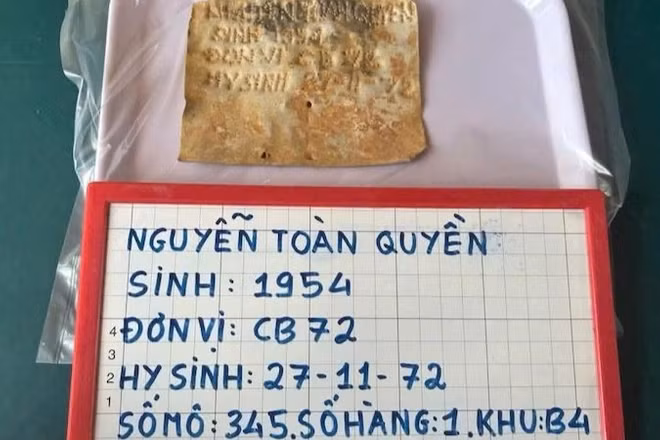 SINH
ĐƠN VỊ
HY SINH
NGUYỄN TOÀN QUYỀN
SINH: 1954
4 ĐƠN VỊ: CB 72
3
2 HY SINH: 27-11-72
1
SỐ MỘ: 345. SỐ HÀNG: 1. KHU: B4